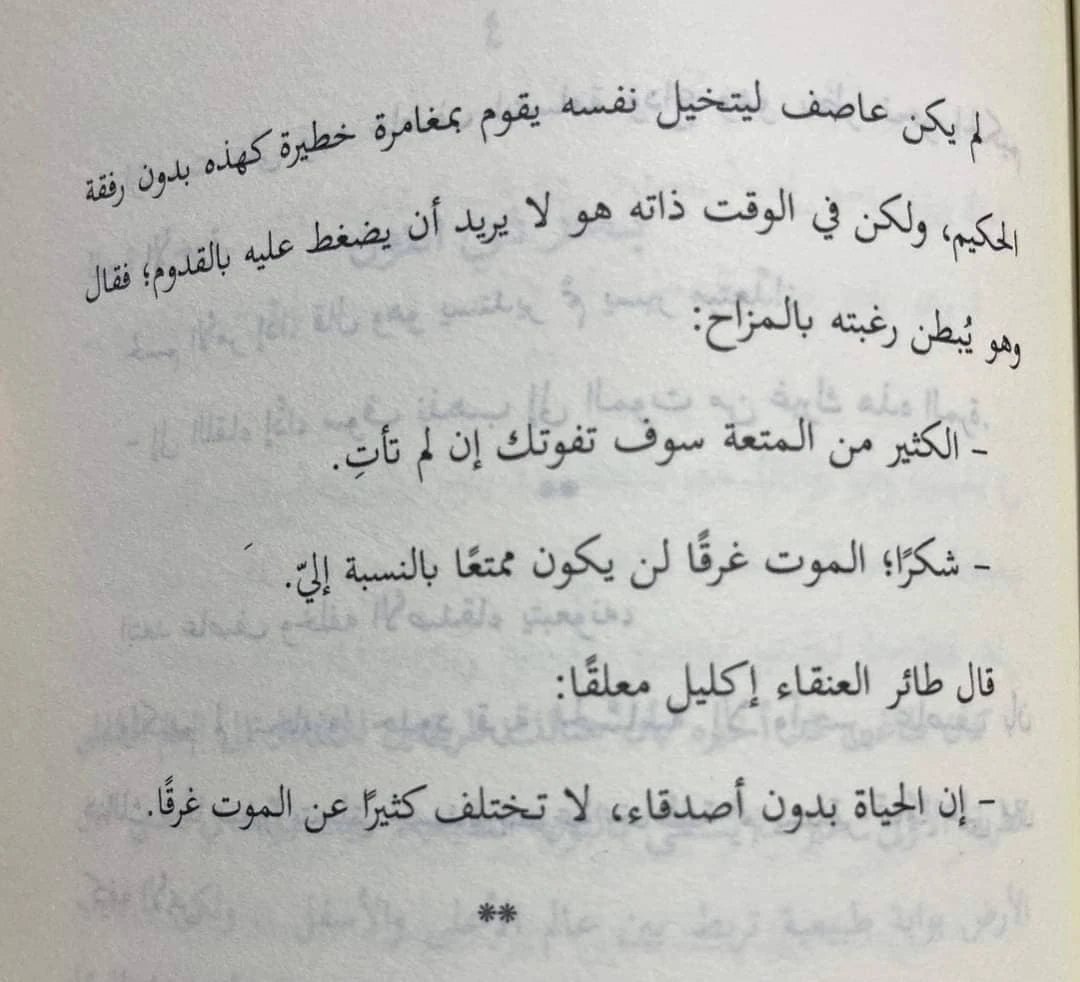 لم يكن عاصف ليتخيل نفسه يقوم بمغامرة خطيرة كهذه بدون رفقة
الحكيم، ولكن في الوقت ذاته هو لا يريد أن يضغط عليه بالقدوم؛ فقال
وهو يُبطن رغبته بالمزاح:
- الكثير من المتعة سوف تفوتك إن لم تأتِ.
- شكرًا؛ الموت غرقًا لن يكون ممتعًا بالنسبة إليّ.
قال طائر العنقاء إكليل معلقًا:
- إن الحياة بدون أصدقاء، لا تختلف كثيرًا عن الموت غرقًا.
**